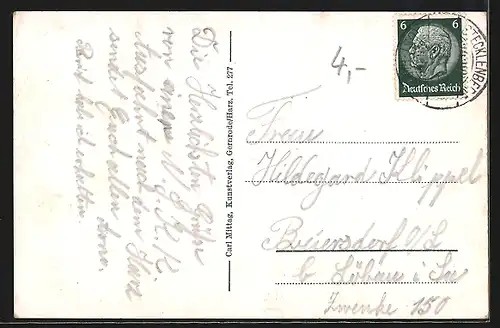 Die Herzlichsten Grüße
von einer N.S.K.K.
Ausfahrt nach dem Harz
sendet Euch allen Arno.
Carl Mittag, Kunstverlag, Gernrode/Harz, Tel. 277
4,-
6 6
Deutsches Reich
TECKLENB
Frau
Hildegard Klippel
Beiersdorf O/L
b Löbau i. Sa
Zwenke 150